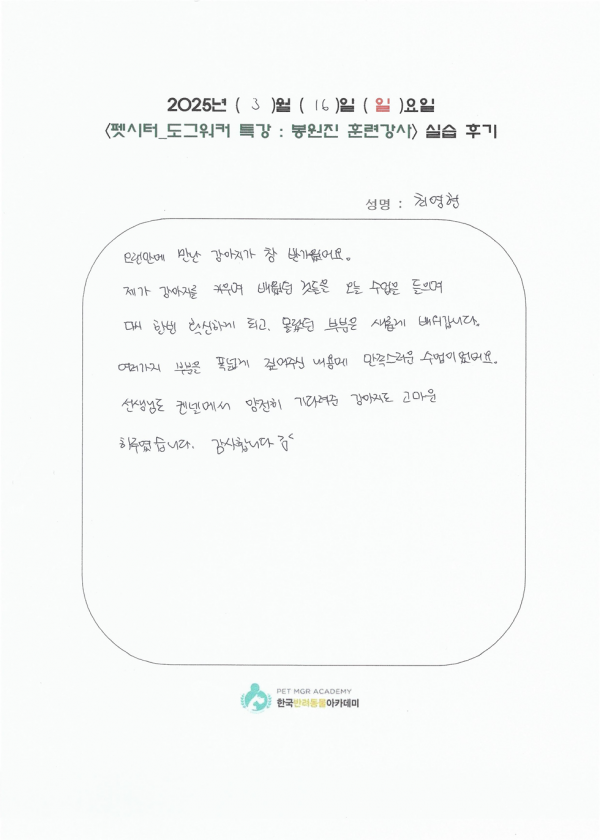 2025년 ( 3 )월 ( 16 )일 ( 일 )요일
<펫시터_도그워커 특강 : 봉원진 훈련강사> 실습 후기
성명 : 천영형
오랜만에 만난 강아지가 참 반가웠어요.
제가 강아지를 키우며 배웠던 것들을 오늘 수업을 들으며
다시 한번 확신하게 되고, 몰랐던 부분은 새롭게 배워갑니다.
여러가지 부분을 폭넓게 짚어주신 내용에 만족스러운 수업이었어요.
선생님도 켄넬에서 얌전히 기다려준 강아지도 고마운
하루였습니다. 감사합니다
PET MGR ACADEMY
한국반려동물아카데미